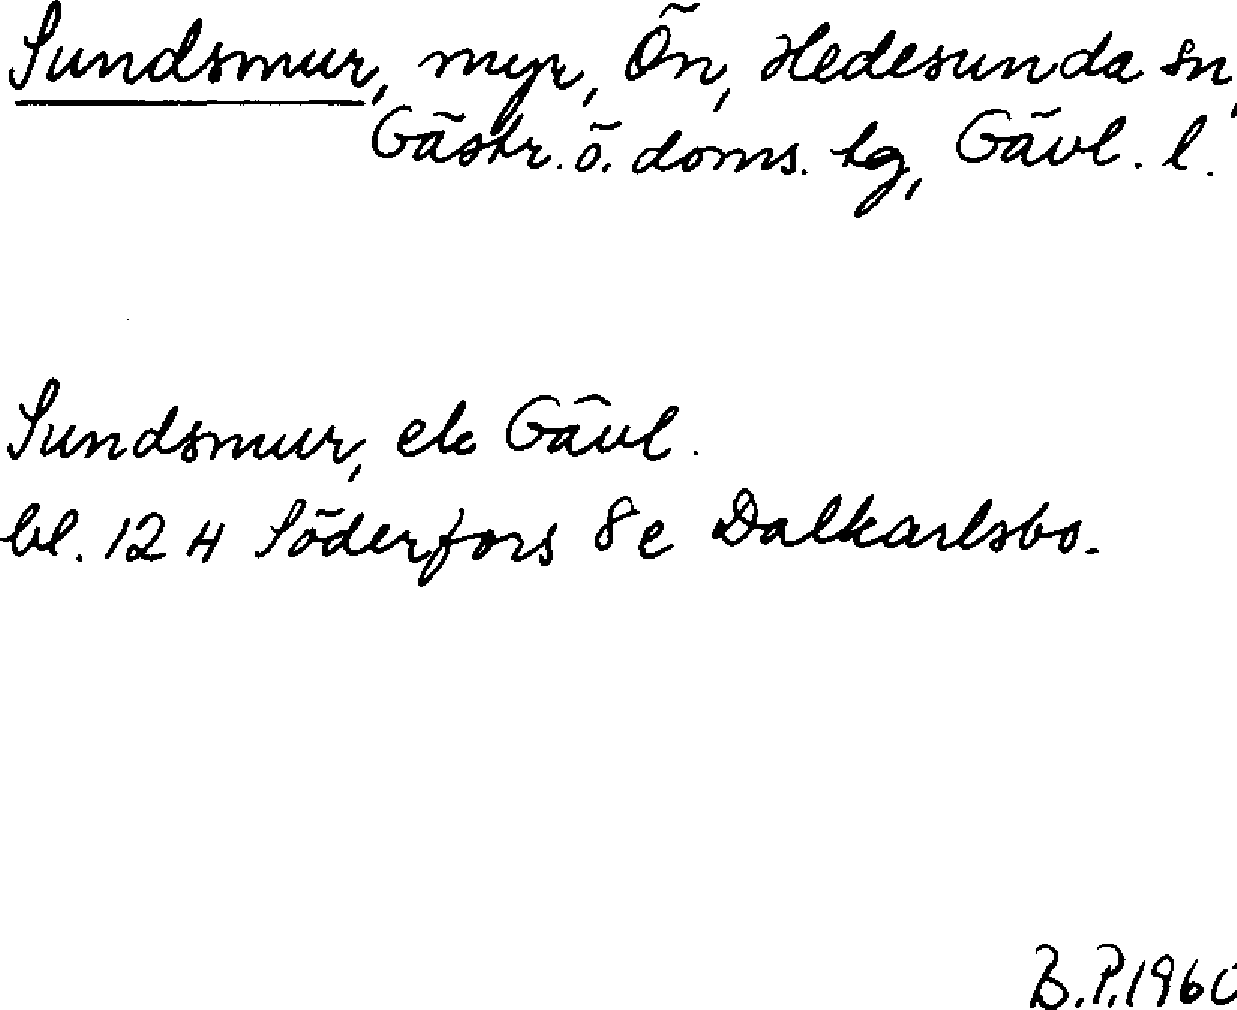 Sundsmur, myr, Ön, Hedesunda sn,
Gästr. ö. doms. tg, Gävl. l.
Sundsmur, ek Gävl.
bl. 12 H Söderfors 8 e Dalkarlsbo.
B.P. 1960